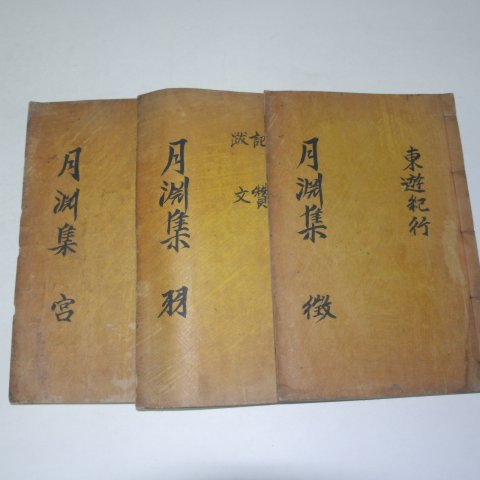 東遊紀行
月淵集 徵
記 贊
跋 文
月淵集 羽
月淵集 宮